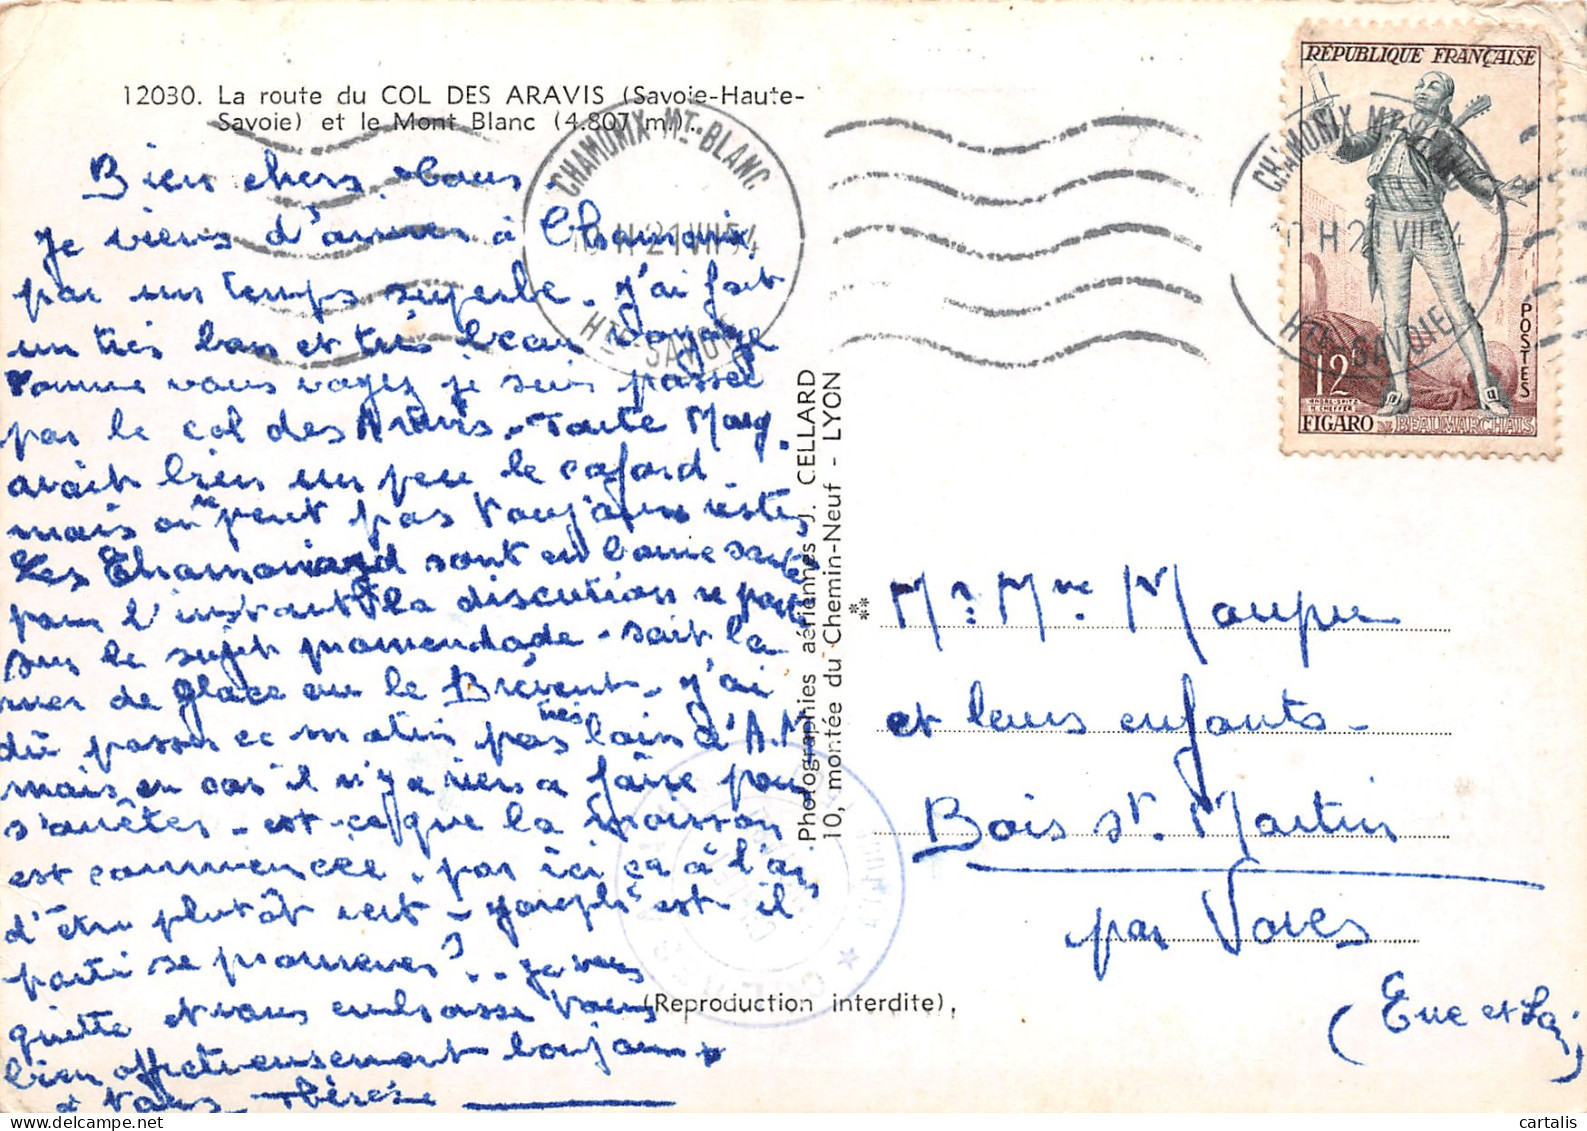 12030. La route du COL DES ARAVIS (Savoie-Haute-
Savoie) et le Mont Blanc (4.807 m.)..
Bien chers vous.
Je viens d'arriver à Chamonix
par un temps superbe. J'ai fait
un très bon et très beau voyage
comme vous voyez je suis passée
par le col des Aravis. Tante Marg.
avait bien un peu le cafard
mais on ne peut pas toujours rester
Les Chamoniard sont en bonne santé
pour l'instant la discution se porte
sur le sujet promendade - soit la
mer de glace ou le Brévent - j'ai
dû passer ce matin pas très loin d'A.M
mais en cas il n'y a rien a faire pour
s'arrêter - est-ce que la moisson
est commencée. par ici ça à l'air
d'être plutôt vert - Joseph est il
parti se promener? .. Je vous
quitte et vous embrasse tous
bien affectueusement toujours
à vous Thérèse
CHAMONIX MT-BLANC
10 H 21 VII 54
HTE SAVOIE
Photographies aériennes J. CELLARD
10, montée du Chemin-Neuf - LYON
**
(Reproduction interdite).
RÉPUBLIQUE FRANÇAISE
POSTES
12F
FIGARO DE BEAUMARCHAIS
CHAMONIX MT-BLANC
10 H 21 VII 54
HTE SAVOIE
Mr. Mme Maupu
et leurs enfants -
Bois St. Martin
par Voves
(Eure et Loir)
cartalis